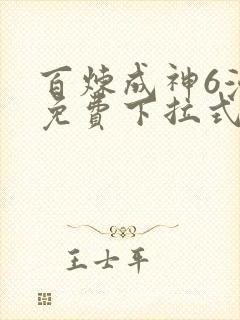 百炼成神6
免费下拉式
王士平